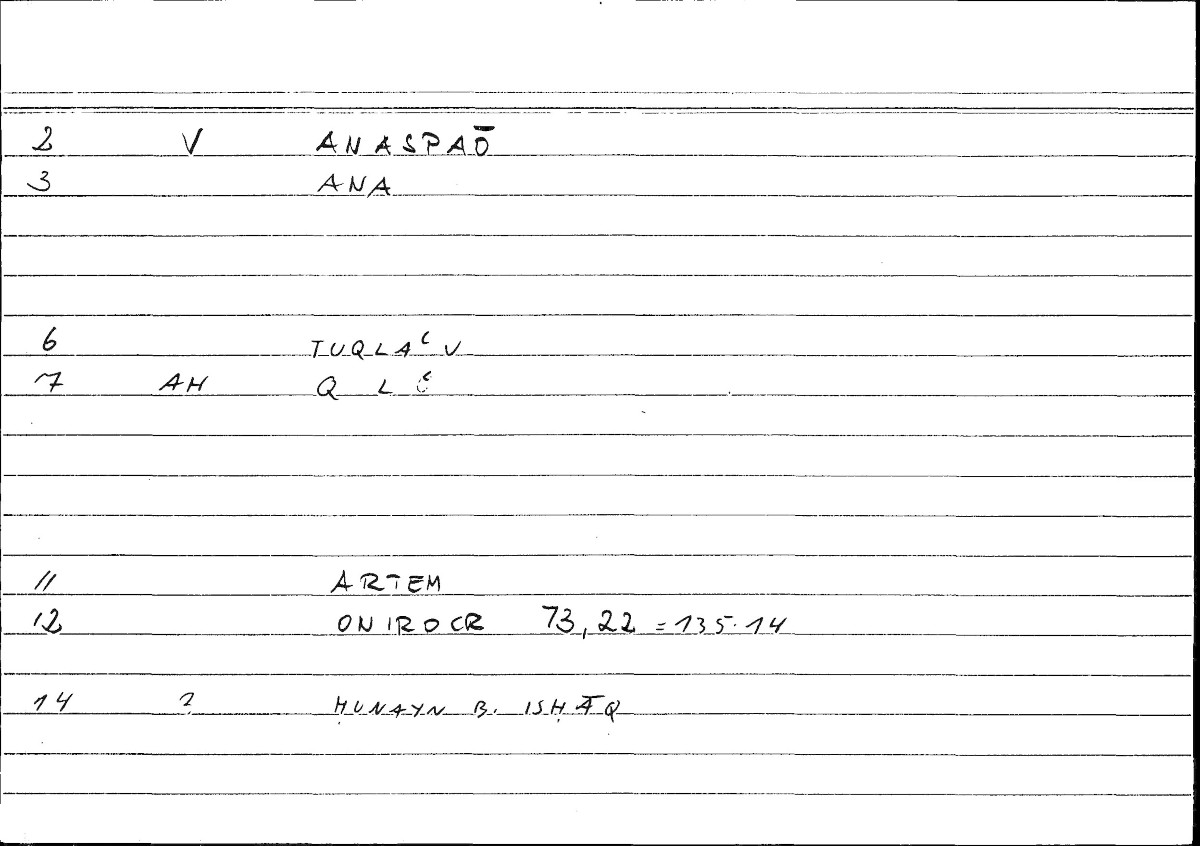 2 V ANASPAŌ
3 ANA
6 TUQLAʿU
7 AH Q L ʿ
11 ARTEM
12 ONIROCR 73,22 = 135.14
14 ? ḤUNAYN B. ISḤĀQ